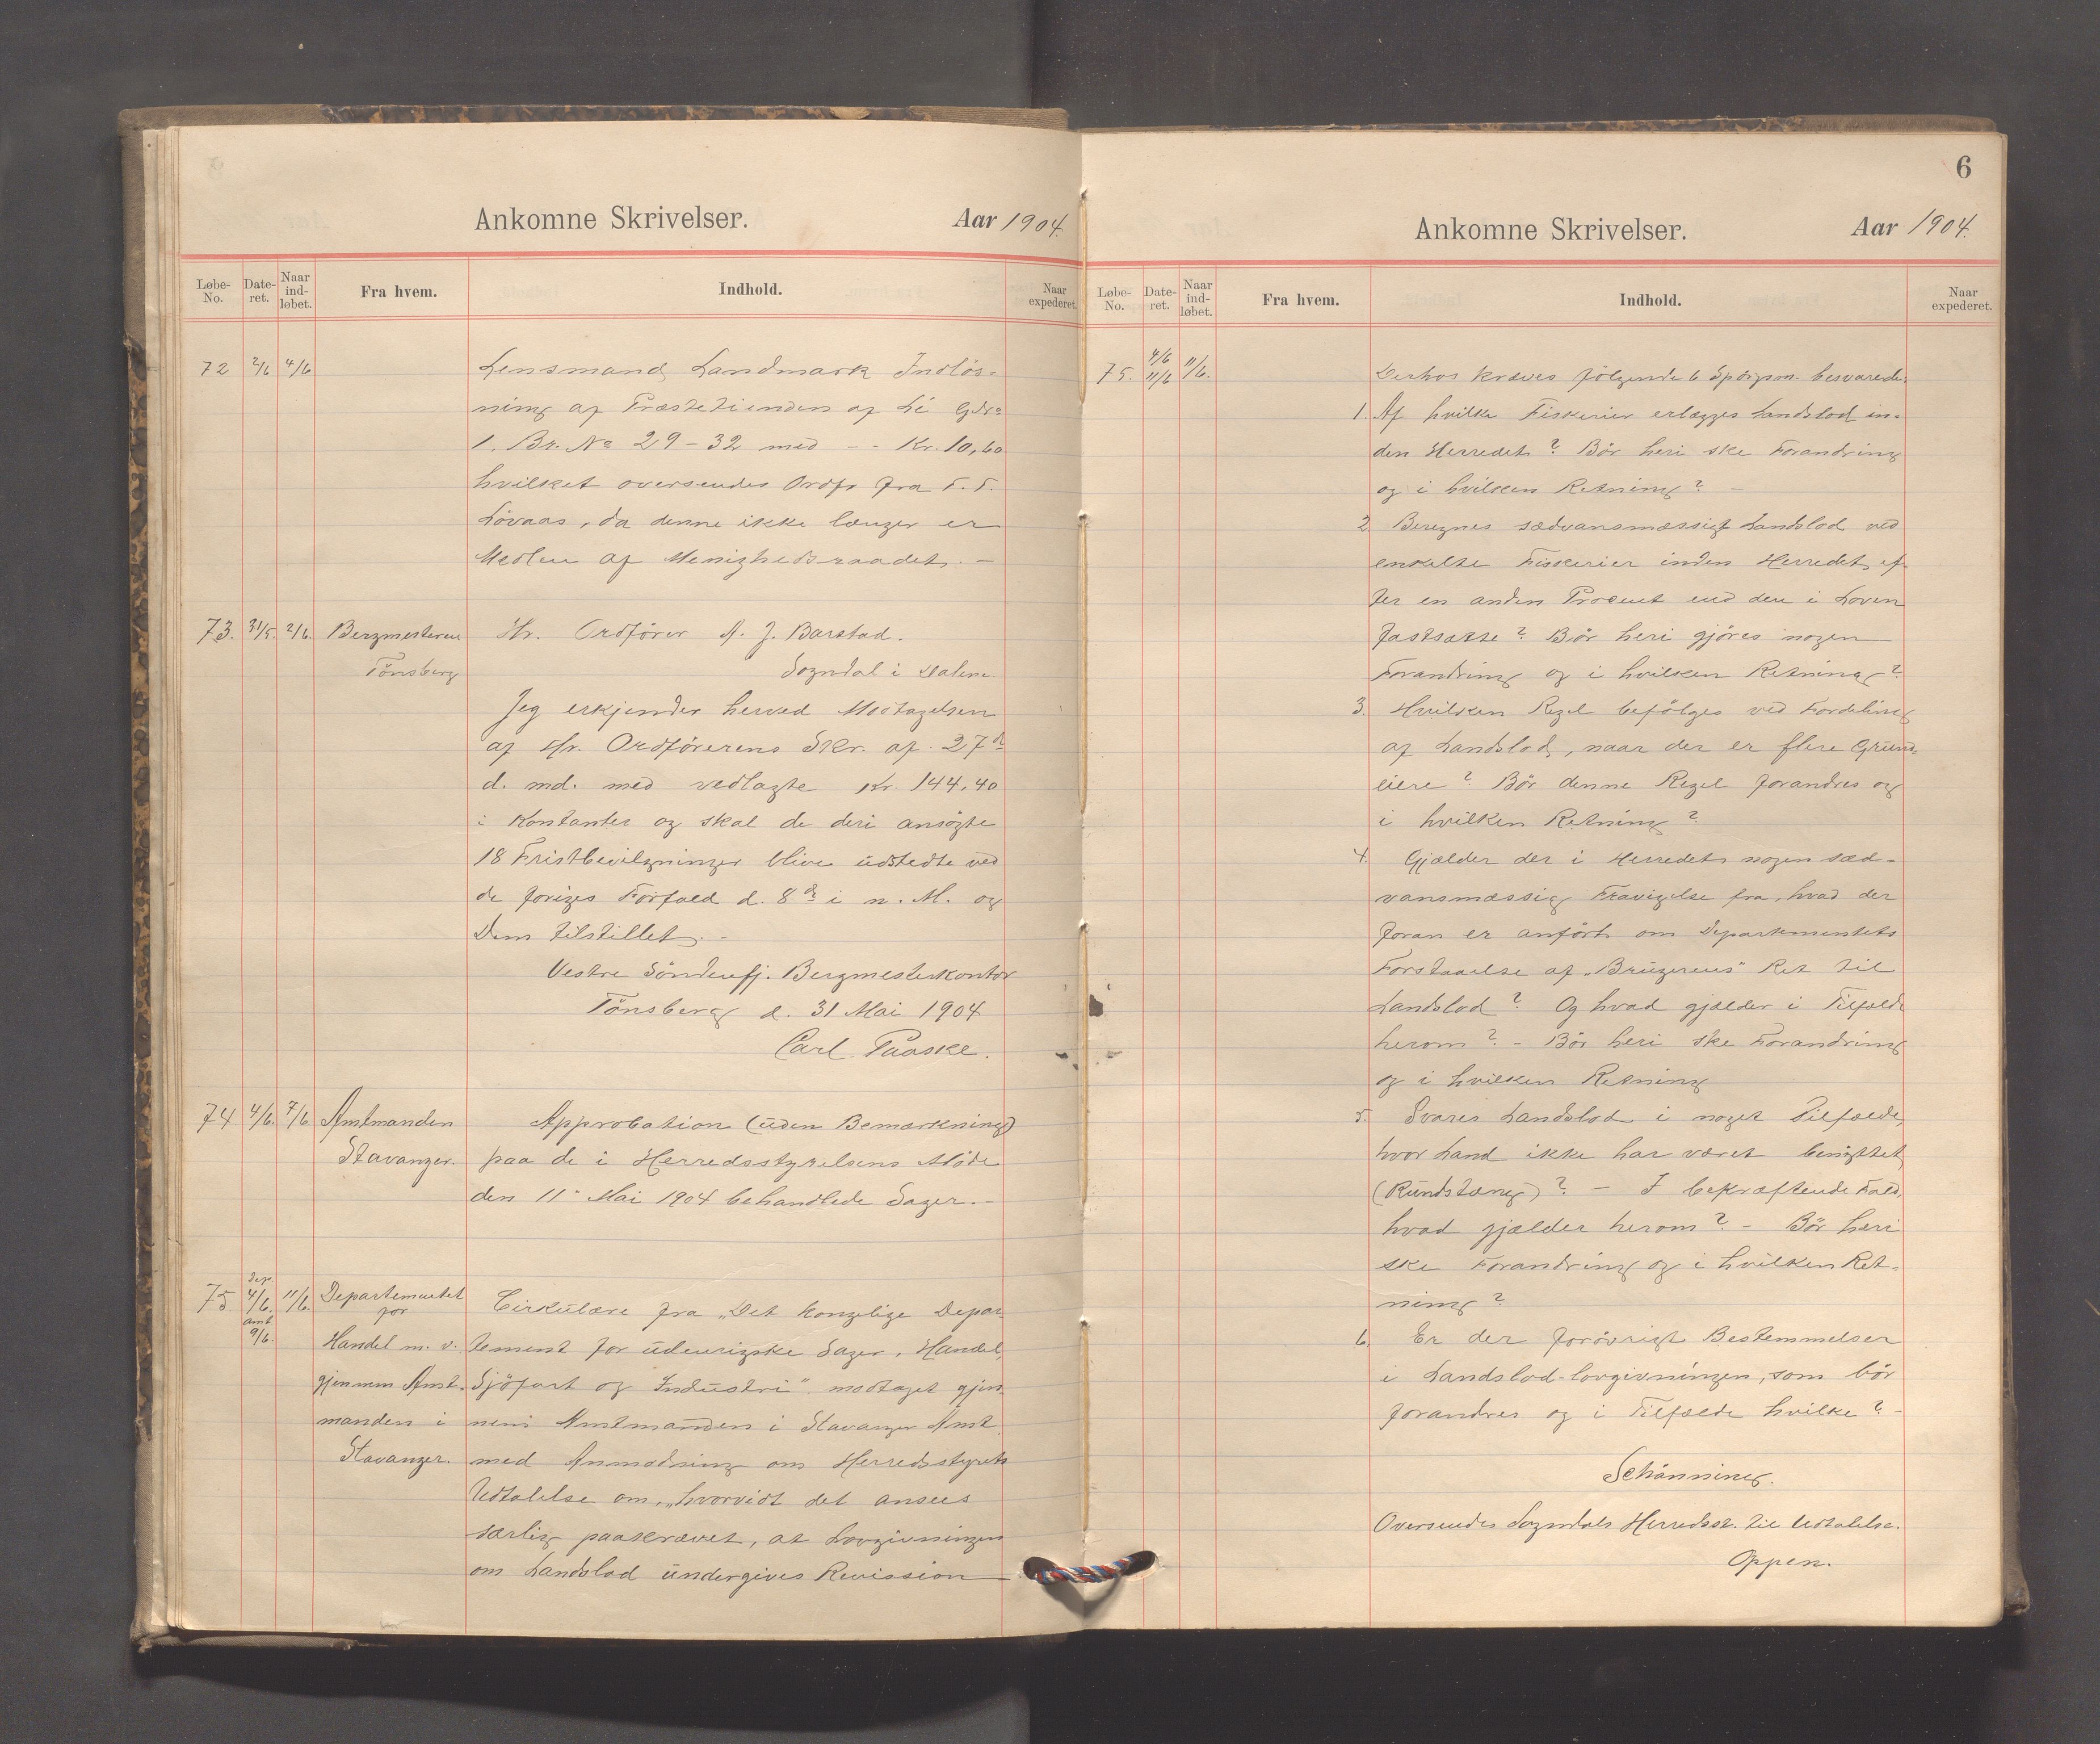 Ankomne Skrivelser. Aar 1904.
Løbe-No. Date-ret. Naar ind-løbet. Fra hvem. Indhold. Naar expederet.
72 2/6 4/6 Lensmand Landmark Indlös-
ning af Præstetienden af Li Gdr.
1. Br. No 29-32 med -- Kr. 10,60
hvilket oversendes Ordf. fra T. T.
Lövaas, da denne ikke længer er
Medlem af Menighedsraadet. -
73. 31/5. 2/6. Bergmesteren Hr. Ordförer A. J. Barstad.
Tönsberg Sogndal i Dalene.
Jeg erkjender herved Modtagelsen
af Hr. Ordförerens Skr. af 27de
d. md. med vedlagte Kr. 144,40
i Kontanter og skal de deri ansögte
18 Fristbevilgninger blive udstedte ved
de foriges Forfald d. 8de i n. M. og
Dem tilstillet. -
Vestre Söndenfj. Bergmesterkontor
Tönsberg d. 31 Mai 1904
Carl Paaske.
74 4/6. 7/6. Amtmanden Approbation (uden Bemærkning)
Stavanger. paa de i Herredsstyrelsens Möde
den 11. Mai 1904 behandlede Sager. -
75. Dep. 4/6. Amt 9/6. 11/6. Departementet for Cirkulære fra „Det kongelige Depar-
Handel m. v. tement for udenrigske Sager, Handel,
gjennem Amt- Sjöfart og Industri" modtaget gjen-
manden i nem Amtmanden i Stavanger Amt
Stavanger. med Anmodning om Herredsstyrets
Udtalelse om, „hvorvidt det ansees
særlig paakrævet, at Lovgivningen
om Landslod undergives Revission
6
Ankomne Skrivelser. Aar 1904.
Løbe-No. Date-ret. Naar ind-løbet. Fra hvem. Indhold. Naar expederet.
75. 4/6 11/6 11/6. Derhos kræves fölgende 6 Spörgsm. besvarede:
1. Af hvilke Fiskerier erlægges Landslod in-
den Herredet? Bör heri ske Forandring
og i hvilken Retning? -
2 Beregnes sædvansmæssigt Landslod ved
enkelte Fiskerier inden Herredet ef-
ter en anden Procent end den i Loven
fastsatte? Bör heri gjöres nogen
Forandring og i hvilken Retning?
3. Hvilken Regel befölges ved Fordeling
af Landslod, naar der er flere Grund-
eiere? Bör denne Regel forandres og
i hvilken Retning?
4. Gjælder der i Herredet nogen sæd-
vansmæssig Fravigelse fra, hvad der
foran er anfört om Departementets
Forstaaelse af „Brugerens" Ret til
Landslod? Og hvad gjælder i Tilfælde
herom? - Bör heri ske Forandring
og i hvilken Retning
5. Svares Landslod i noget Tilfælde,
hvor Land ikke har været benyttet
(Rundstæng)? - I bekræftende Fald,
hvad gjælder herom? - Bör heri
ske Forandring og i hvilken Ret-
ning?
6. Er der forövrigt Bestemmelser
i Landslod-lovgivningen, som bör
forandres og i Tilfælde hvilke? -
Schönning.
Oversendes Sogndals Herredsst. til Udtalelse.
Oppen.